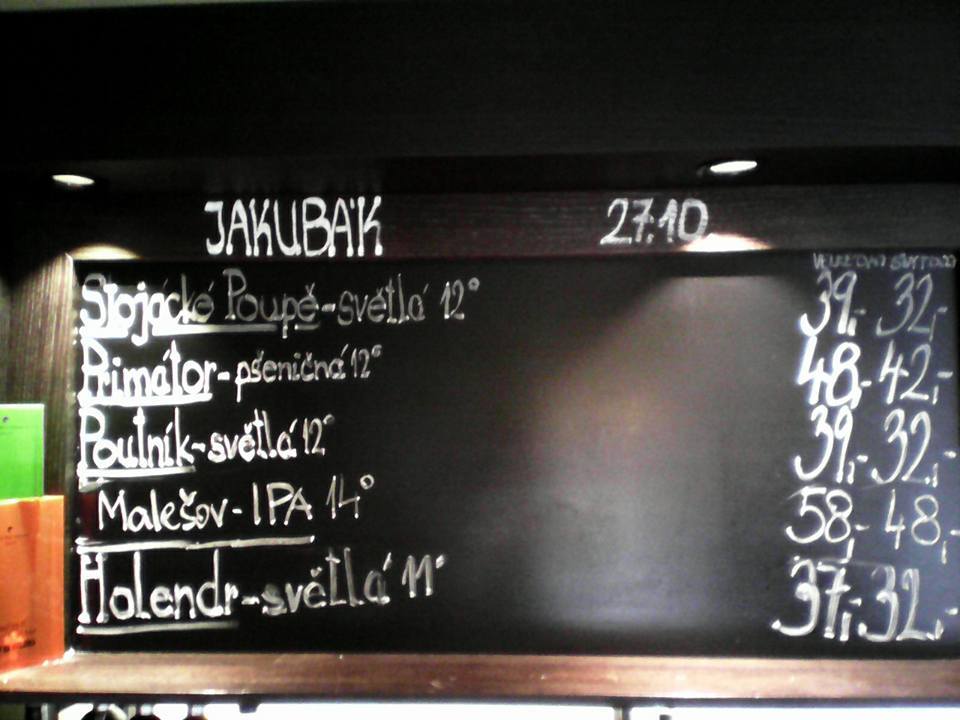 JAKUBÁK 27.10
Stojácké Poupě-světlá 12° 39,- 32,-
Primátor-pšeničná 12° 48,- 42,-
Poutník-světlá 12° 39,- 32,-
Malešov-IPA 14° 58,- 48,-
Holendr-světlá 11° 37,- 32,-